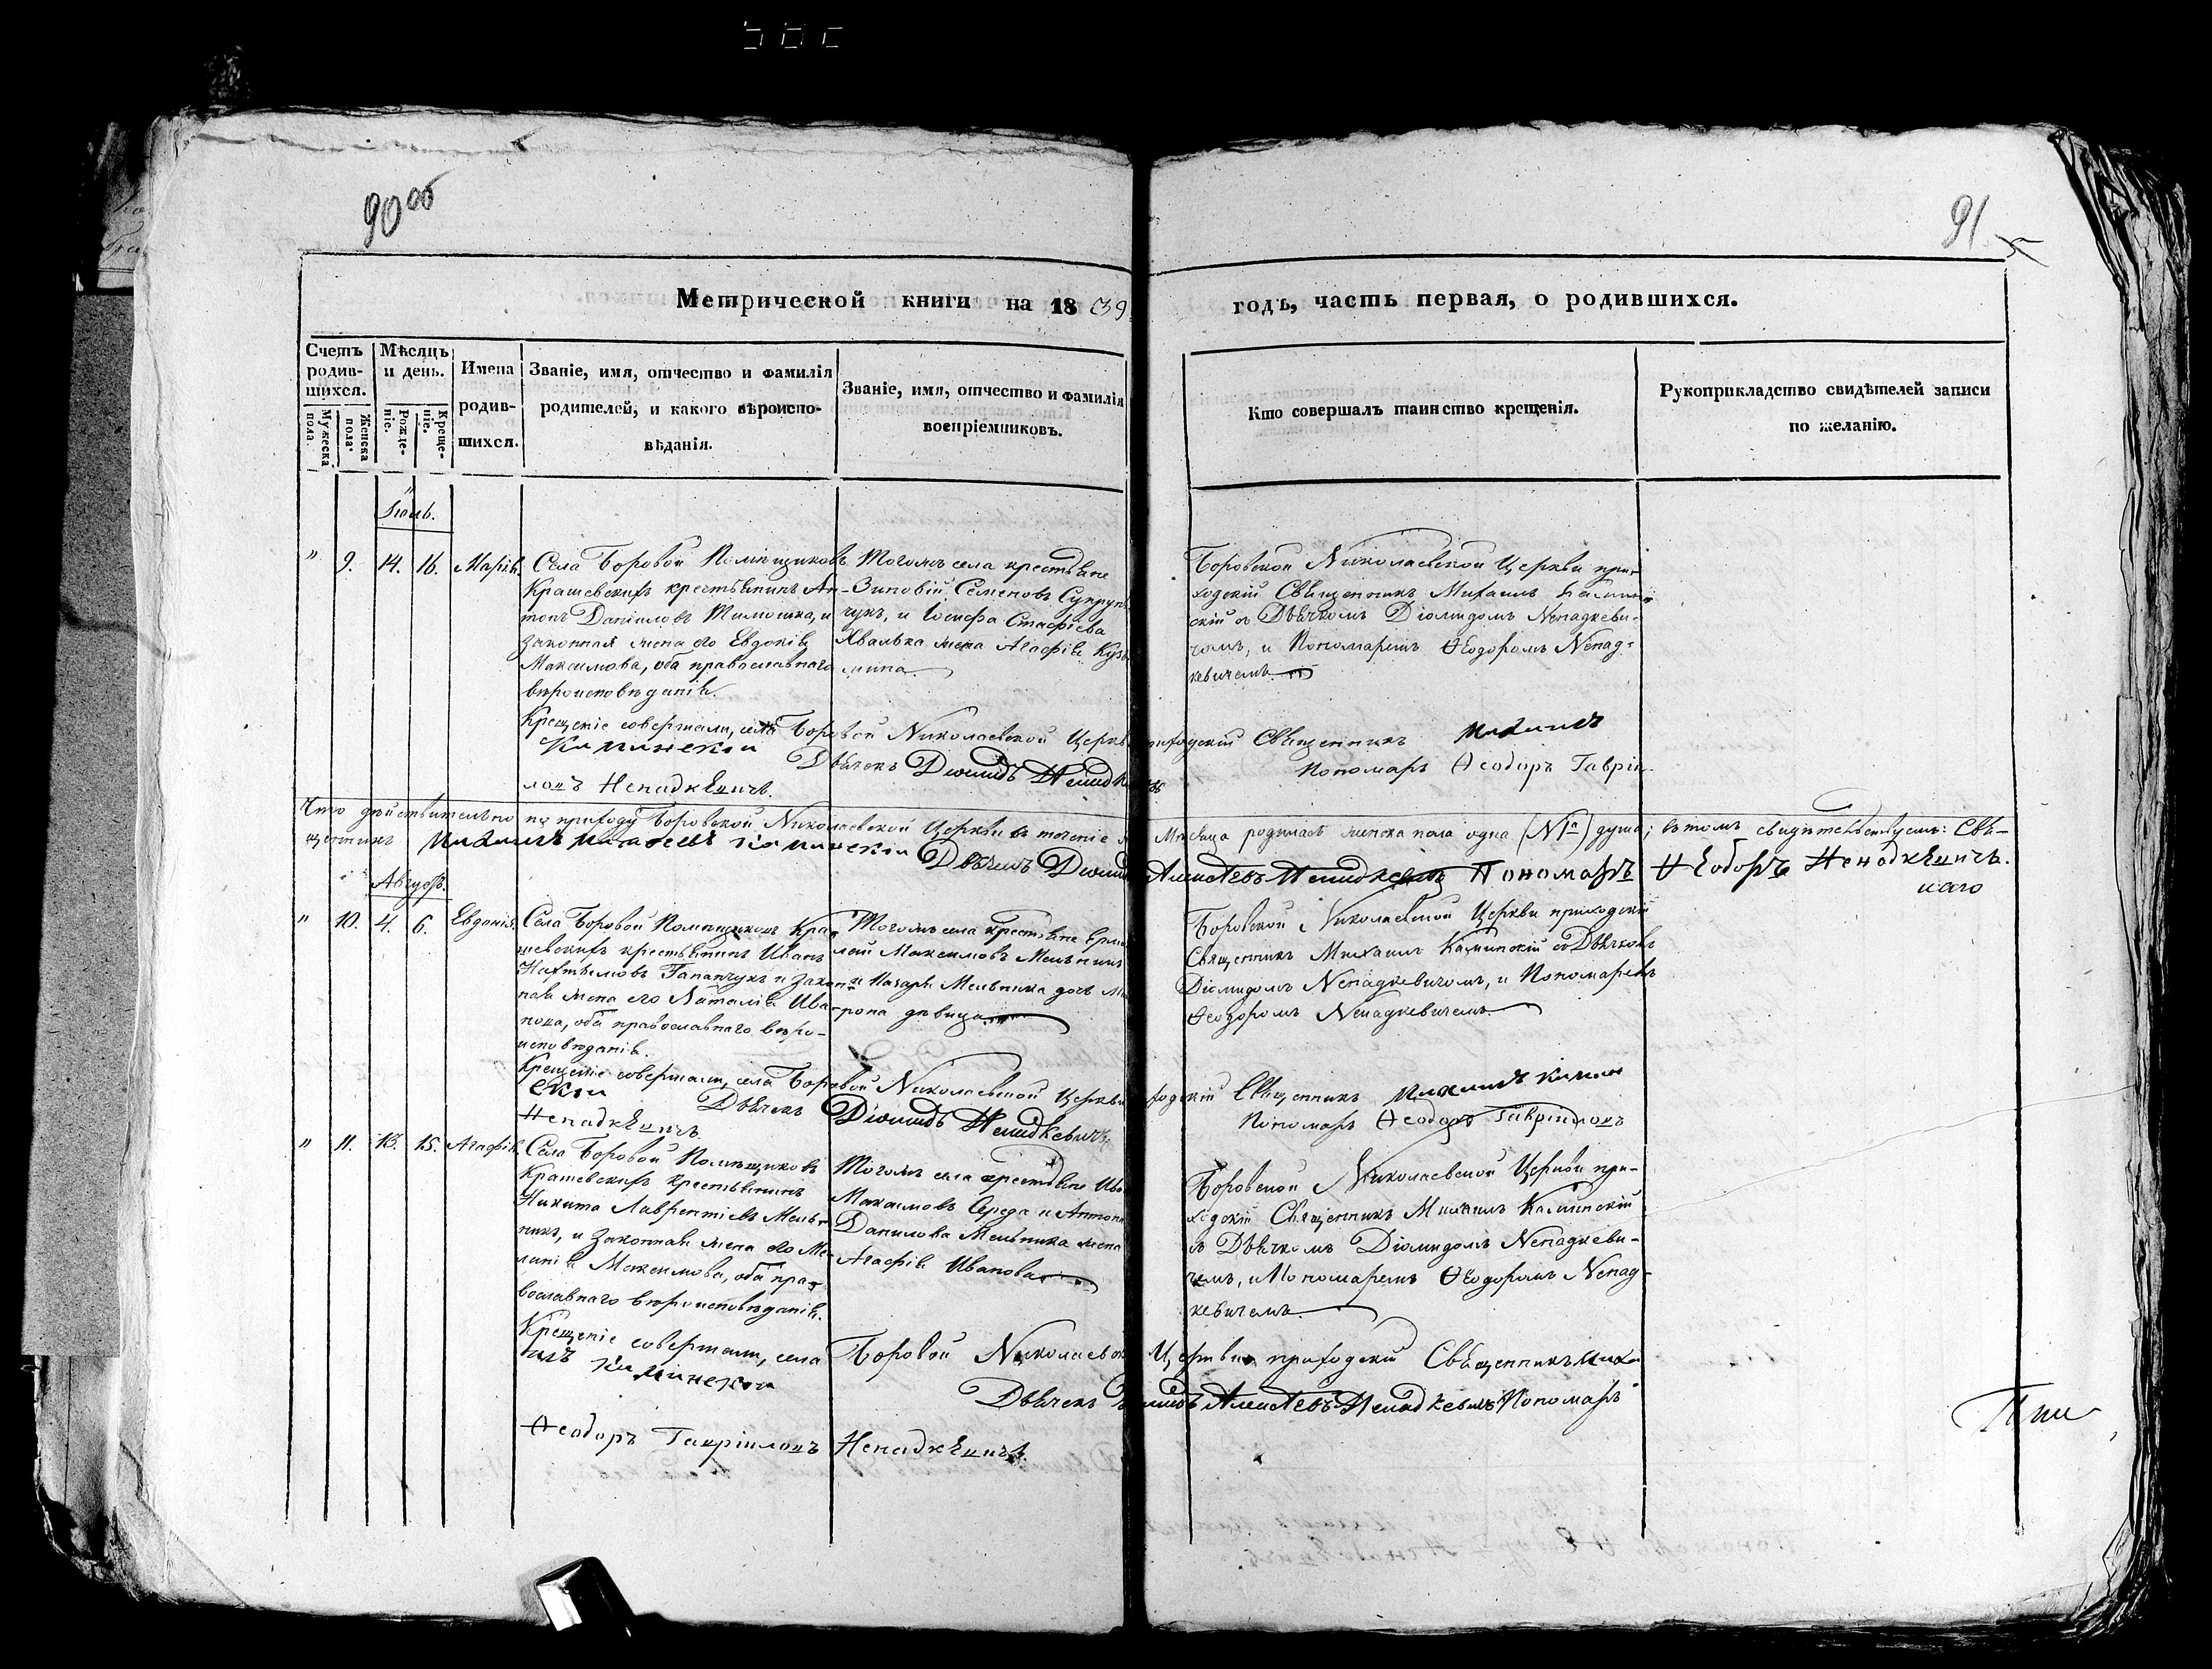 90 об
91
Метрической книги на 1839
годъ, часть первая, о родившихся.
Счетъ родив-шихся.
Мужеска пола.
Женска пола.
Мѣсяцъ и день.
Рожде-ніе.
Креще-ніе.
Имена родив-шихся.
Званіе, имя, отчество и фамилія
родителей, и какого вѣроиспо-
вѣданія.
Званіе, имя, отчество и фамилія
воспріемниковъ.
Кто совершалъ таинство крещенія.
Рукоприкладство свидѣтелей записи
по желанію.
Іюль.
" 9. 14. 16. Марія.
Села Боровой Помѣщиковъ
Крашевскихъ крестьянинъ Ан-
тонъ Даніиловъ Тимошка, и
законная жена его Евдокія
Максимова, оба православнаго
вѣроисповѣданія.
Тогожъ села крестьяне
Зиновій Семеновъ Супрун-
чукъ, и Іосифа Стафіева
Хвалька жена Агафія Кузь-
мина.
Боровской Николаевской Церкви при-
ходскій Священникъ Михаилъ Камин-
скій съ Дьячкомъ Діомидомъ Ненадкеви-
чомъ, и Пономаремъ Ѳеодоромъ Ненад-
кевичемъ.
Крещеніе совершали, села Боровой Николаевской Церкви приходскій Священникъ Михаилъ
Каминскій Дьячекъ Діомидъ Ненадкевичъ Пономарь Ѳеодоръ Гаврій-
ловъ Ненадкевичъ.
Что дѣйствительно по приходу Боровской Николаевской Церкви въ теченіе Мѣсяца родилась женска пола одна (№1а) душа; въ томъ свидѣтельствуемъ: Свя-
щенникъ Михаилъ Каминскій Дьячекъ Діомидъ Ненадкевичъ Пономарь Ѳеодоръ Ненадкевичъ.
Августъ.
" 10. 4. 6. Евдокія.
Села Боровой Помѣщиковъ Кра-
шевскихъ крестьянинъ Иванъ
Гапанчукъ и закон-
ная жена его Наталія Ива-
нова, оба православнаго вѣро-
исповѣданія.
Тогожъ села крестьяне Ермо-
лай Максимовъ Мельникъ
и Назарія Мельника дочь Ма-
трона дѣвица.
Боровской Николаевской Церкви приходскій
Священникъ Михаилъ Каминскій съ Дьячкомъ
Діомидомъ Ненадкевичомъ, и Пономаремъ
Ѳеодоромъ Ненадкевичемъ.
Крещеніе совершали, села Боровой Николаевской Церкви приходскій Священникъ Михаилъ Камин
скій Дьячекъ Діомидъ Ненадкевичъ Пономарь Ѳеодоръ Гавріиловъ
Ненадкевичъ.
" 11. 13. 15. Агафія.
Села Боровой Помѣщиковъ
Крашевскихъ крестьянинъ
Никита Лаврентіевъ Мель-
никъ, и законная жена его Ме-
ланія Максимова, оба пра-
вославнаго вѣроисповѣданія.
Тогожъ села крестьяне Иванъ
Максимовъ Середа и Антона
Данилова Мельника жена
Агафія Иванова
Боровской Николаевской Церкви при-
ходскій Священникъ Михаилъ Каминскій
съ Дьячкомъ Діомидомъ Ненадкеви-
чемъ, и Пономаремъ Ѳеодоромъ Ненад-
кевичемъ.
Крещеніе совершали, села Боровой Николаевской Церкви приходскій Священникъ Миха
илъ Каминскій
Дьячекъ Діомидъ Ненадкевичъ Пономарь
Ѳеодоръ Гавріиловъ Ненадкевичъ.